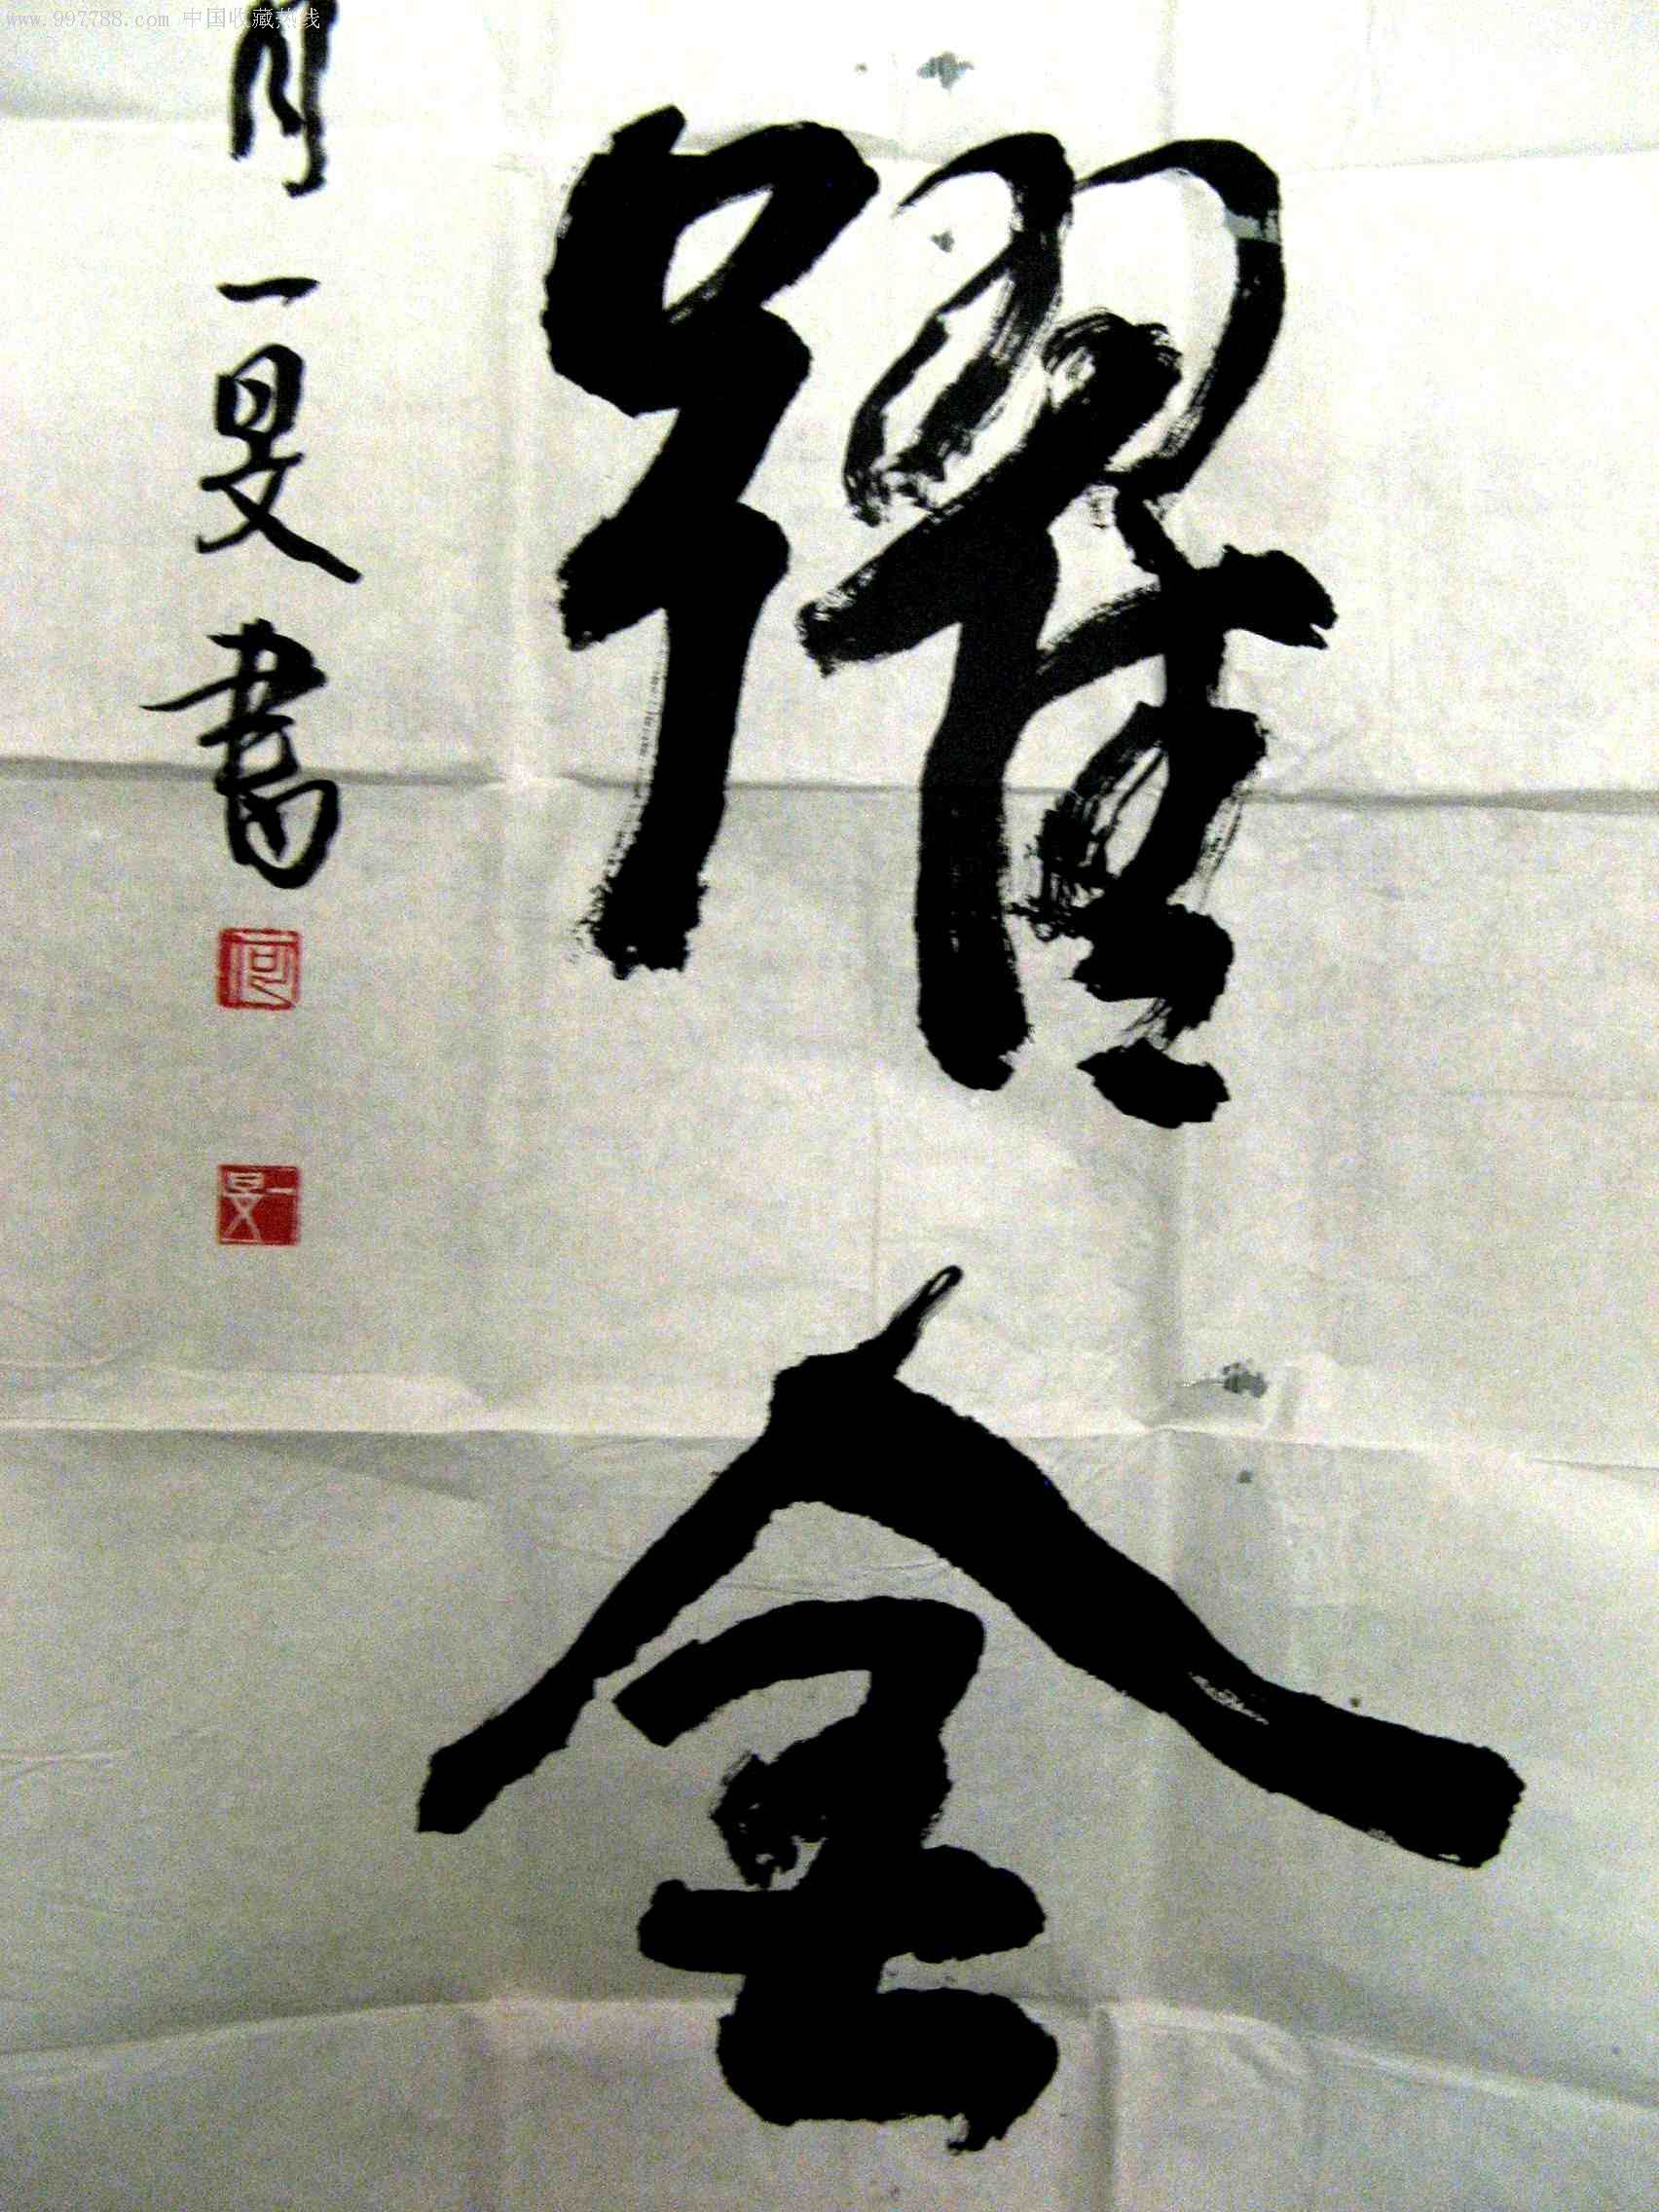 www.997788.com 中国收藏热线
躍金
月一旻書
一旻